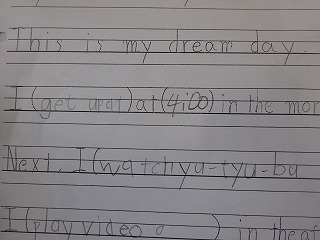 This is my dream day.
I (get upat) at (4:00) in the mor
Next, I (watchyu-tyu-bu
I (play video g ) in theaf